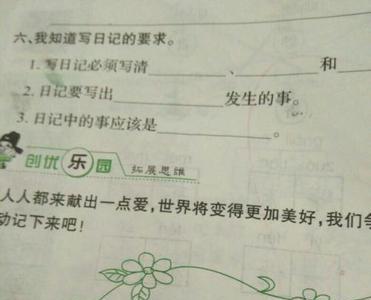 六、我知道写日记的要求。
1. 写日记必须写清________、________和
2. 日记要写出________发生的事。
3. 日记中的事应该是________。
创优乐园 拓展思维
人人都来献出一点爱,世界将变得更加美好,我们
动记下来吧!